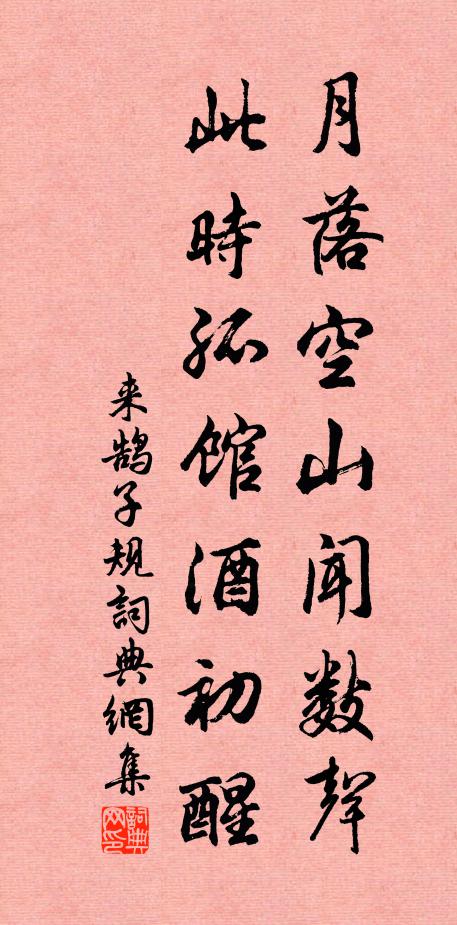 月落空山闻数声
此時孤馆酒初醒
来鹄子规詞典網集
詞典网印